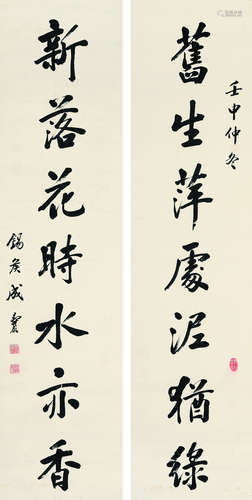 壬申仲冬
舊生萍處泥猶綠
新落花時水亦香
錫侯成鑿